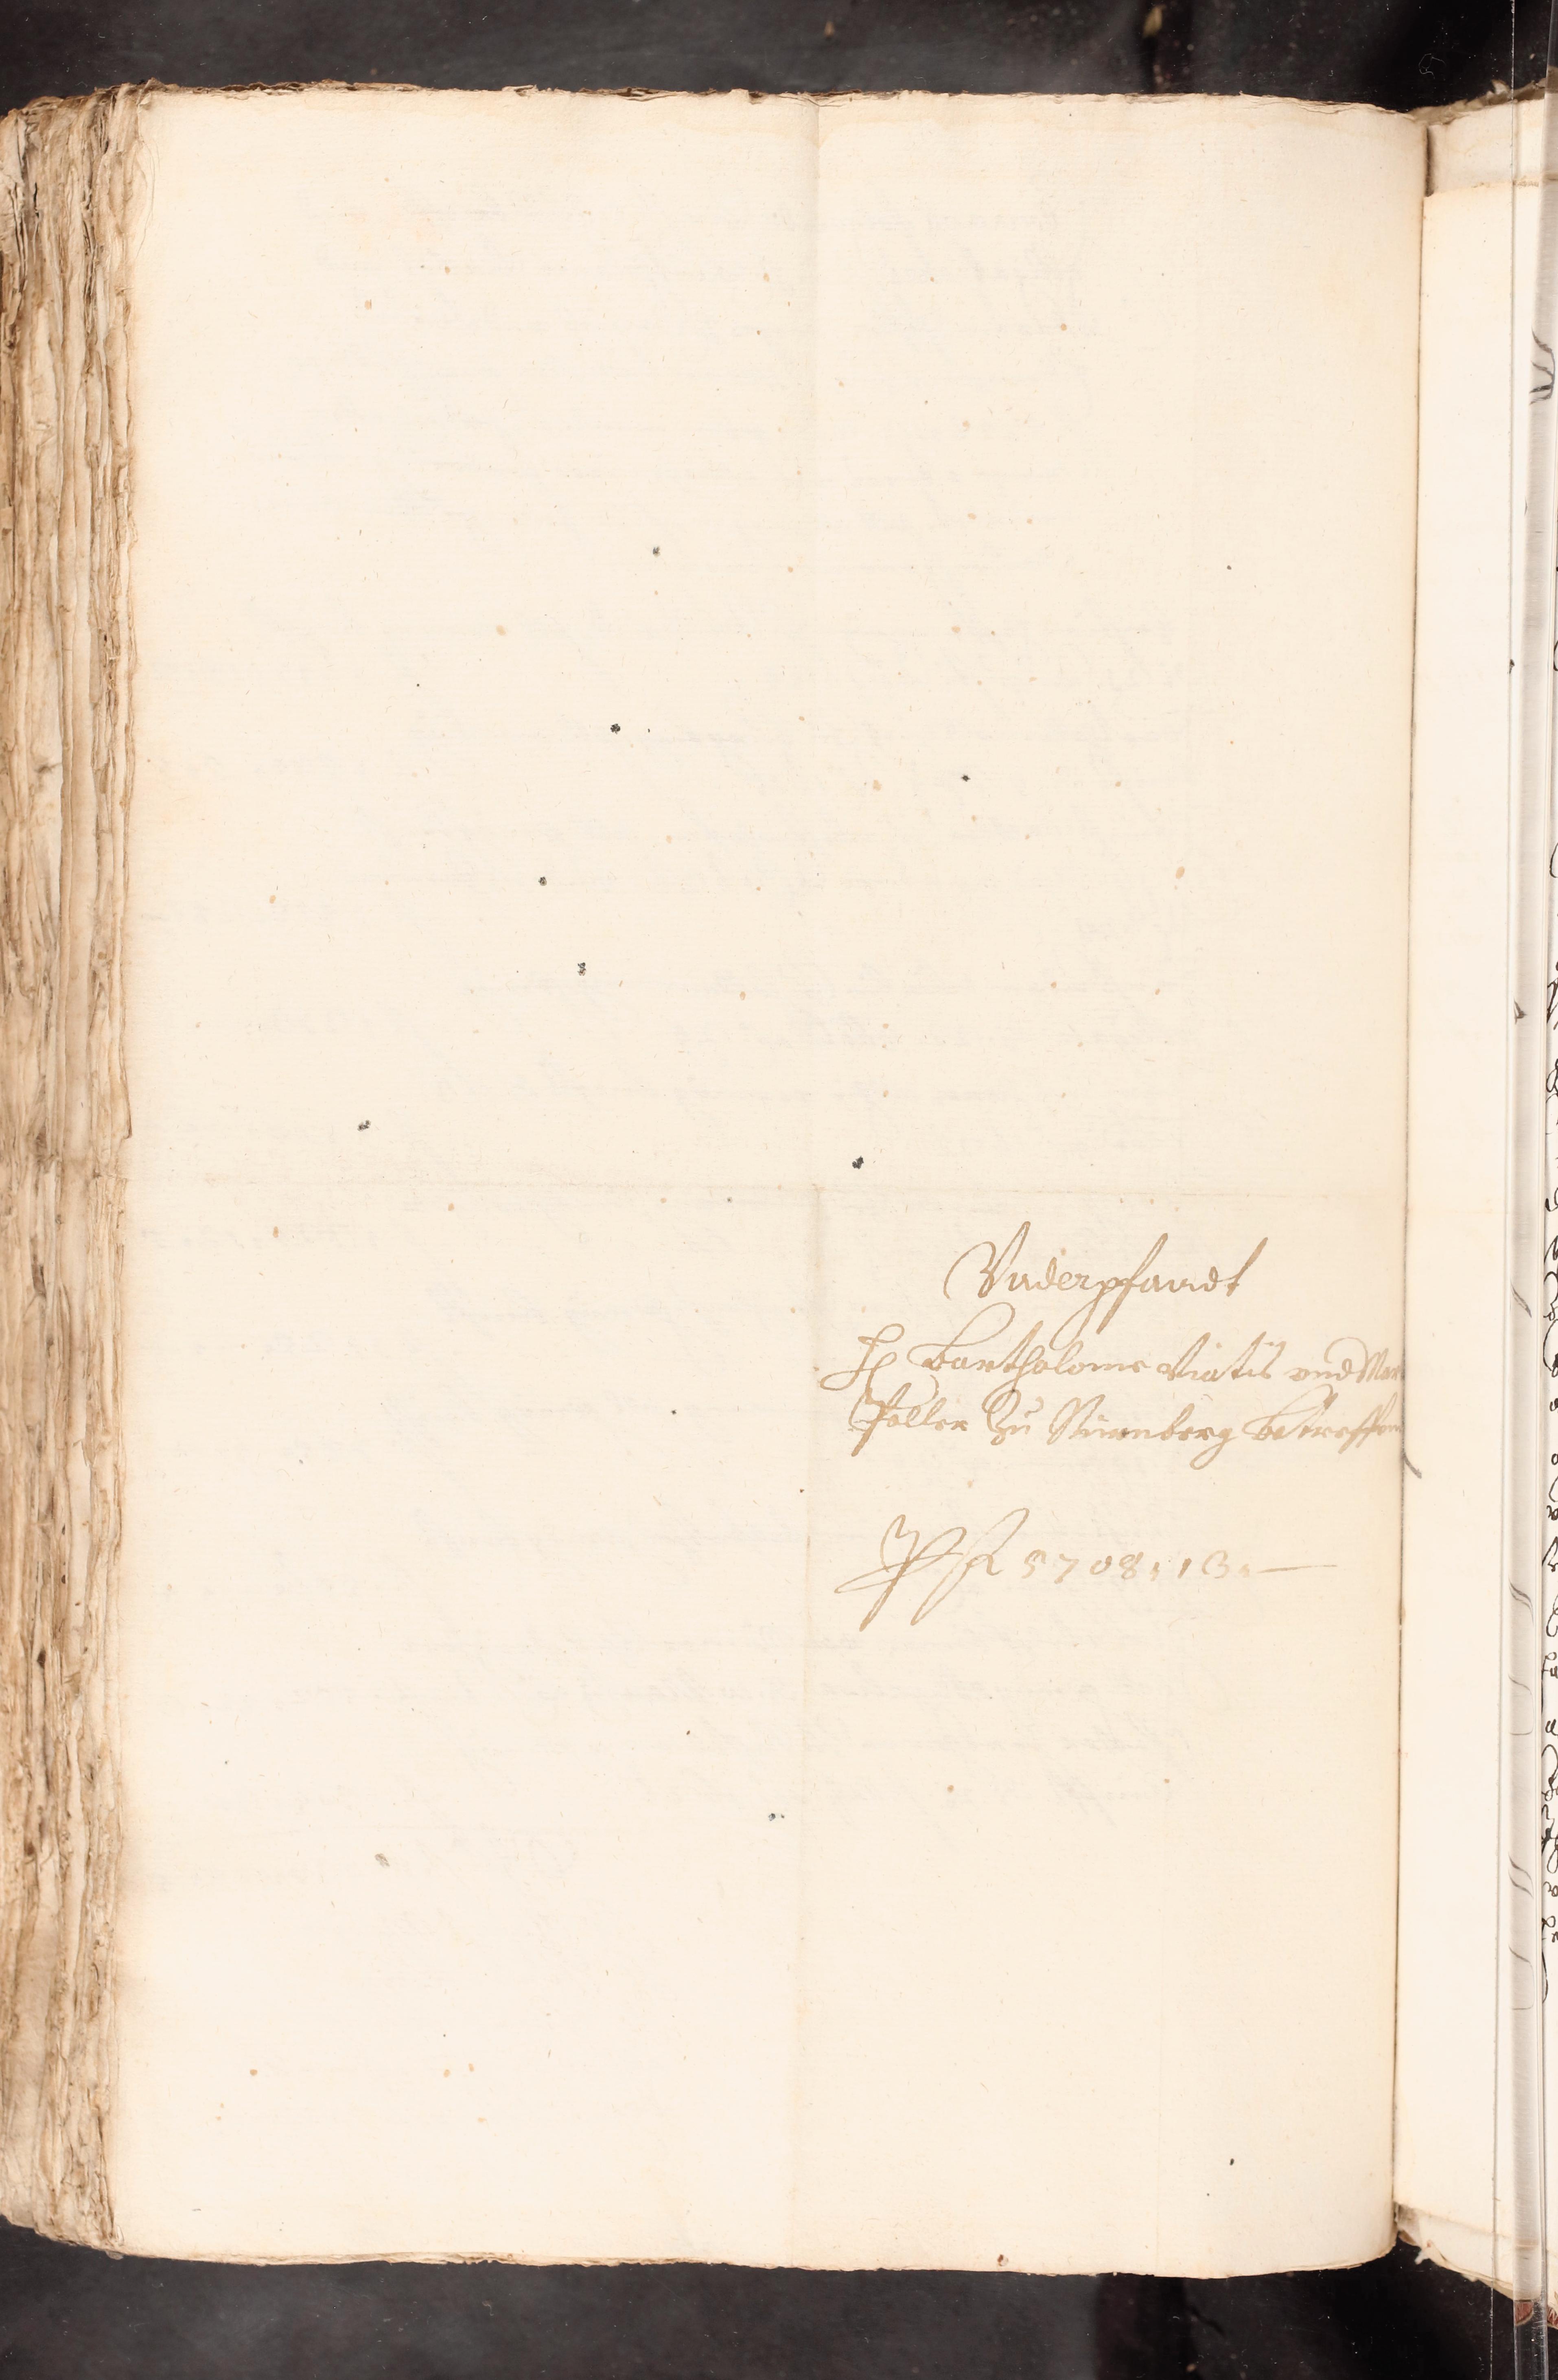 Vnderpfandt
H Bartholome Viatis vnd Mar
Peller Zu Nürnberg betreffen
Pr fl 5708. 13. —